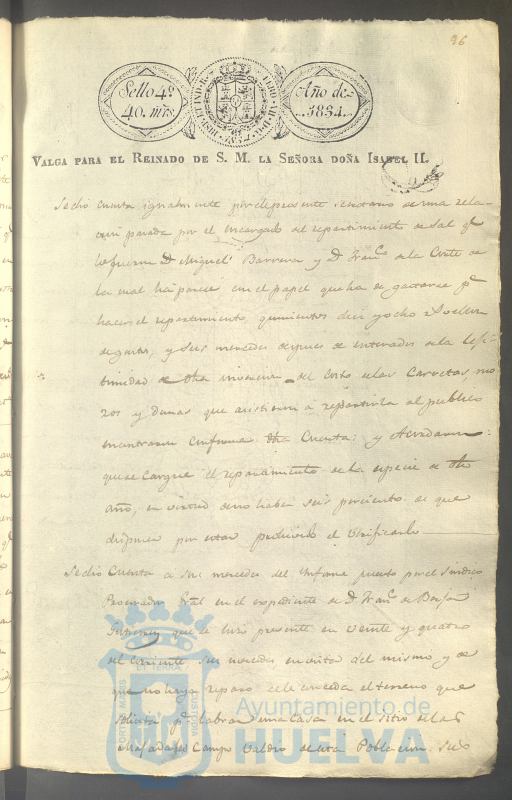 96
Sello 4º
40. mrs
Año de
1834
VALGA PARA EL REINADO DE S. M. LA SEÑORA DOÑA ISABEL II.
Se dio cuenta igualmente por el presente Escribano de una rela-
cion pasada por el encargado del repartimiento de Sal qe
lo fueron Dn Miguel Barrera y Dn Franco de la Corte de
la cual ha parece con el papel que ha de gastarse pa
hacer el repartimiento, quinientos diez y ocho rs
de gastos, y sus mercedes despues de enterados de la lexi-
timidad de dha del costo de las Carretas, mo
zos y demas que asistieron á repartirla al publico
encontraron conforme dha Cuenta: y Acordaron
que se cargue el repartimiento de la especie de dho
año, en virtud de no haber seis por ciento de que
disponer por estar prohivido el Verificarlo
Se dio Cuenta a sus mercedes del Informe puesto por el Sindico
Procurador Gral en el expediente de Dn Franco de Borja
que se hizo presente en Veinte y quatro
del corriente. sus mercedes en vista del mismo y de
que no haya reparo se le conceda el terreno que
solicita pa labrar una Casa en el sitio de las
Campo Valdio de esta Poblacion. Sus
Ayuntamiento de
HUELVA